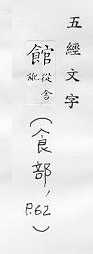 五經文字
館從舍
（食部，P.62）